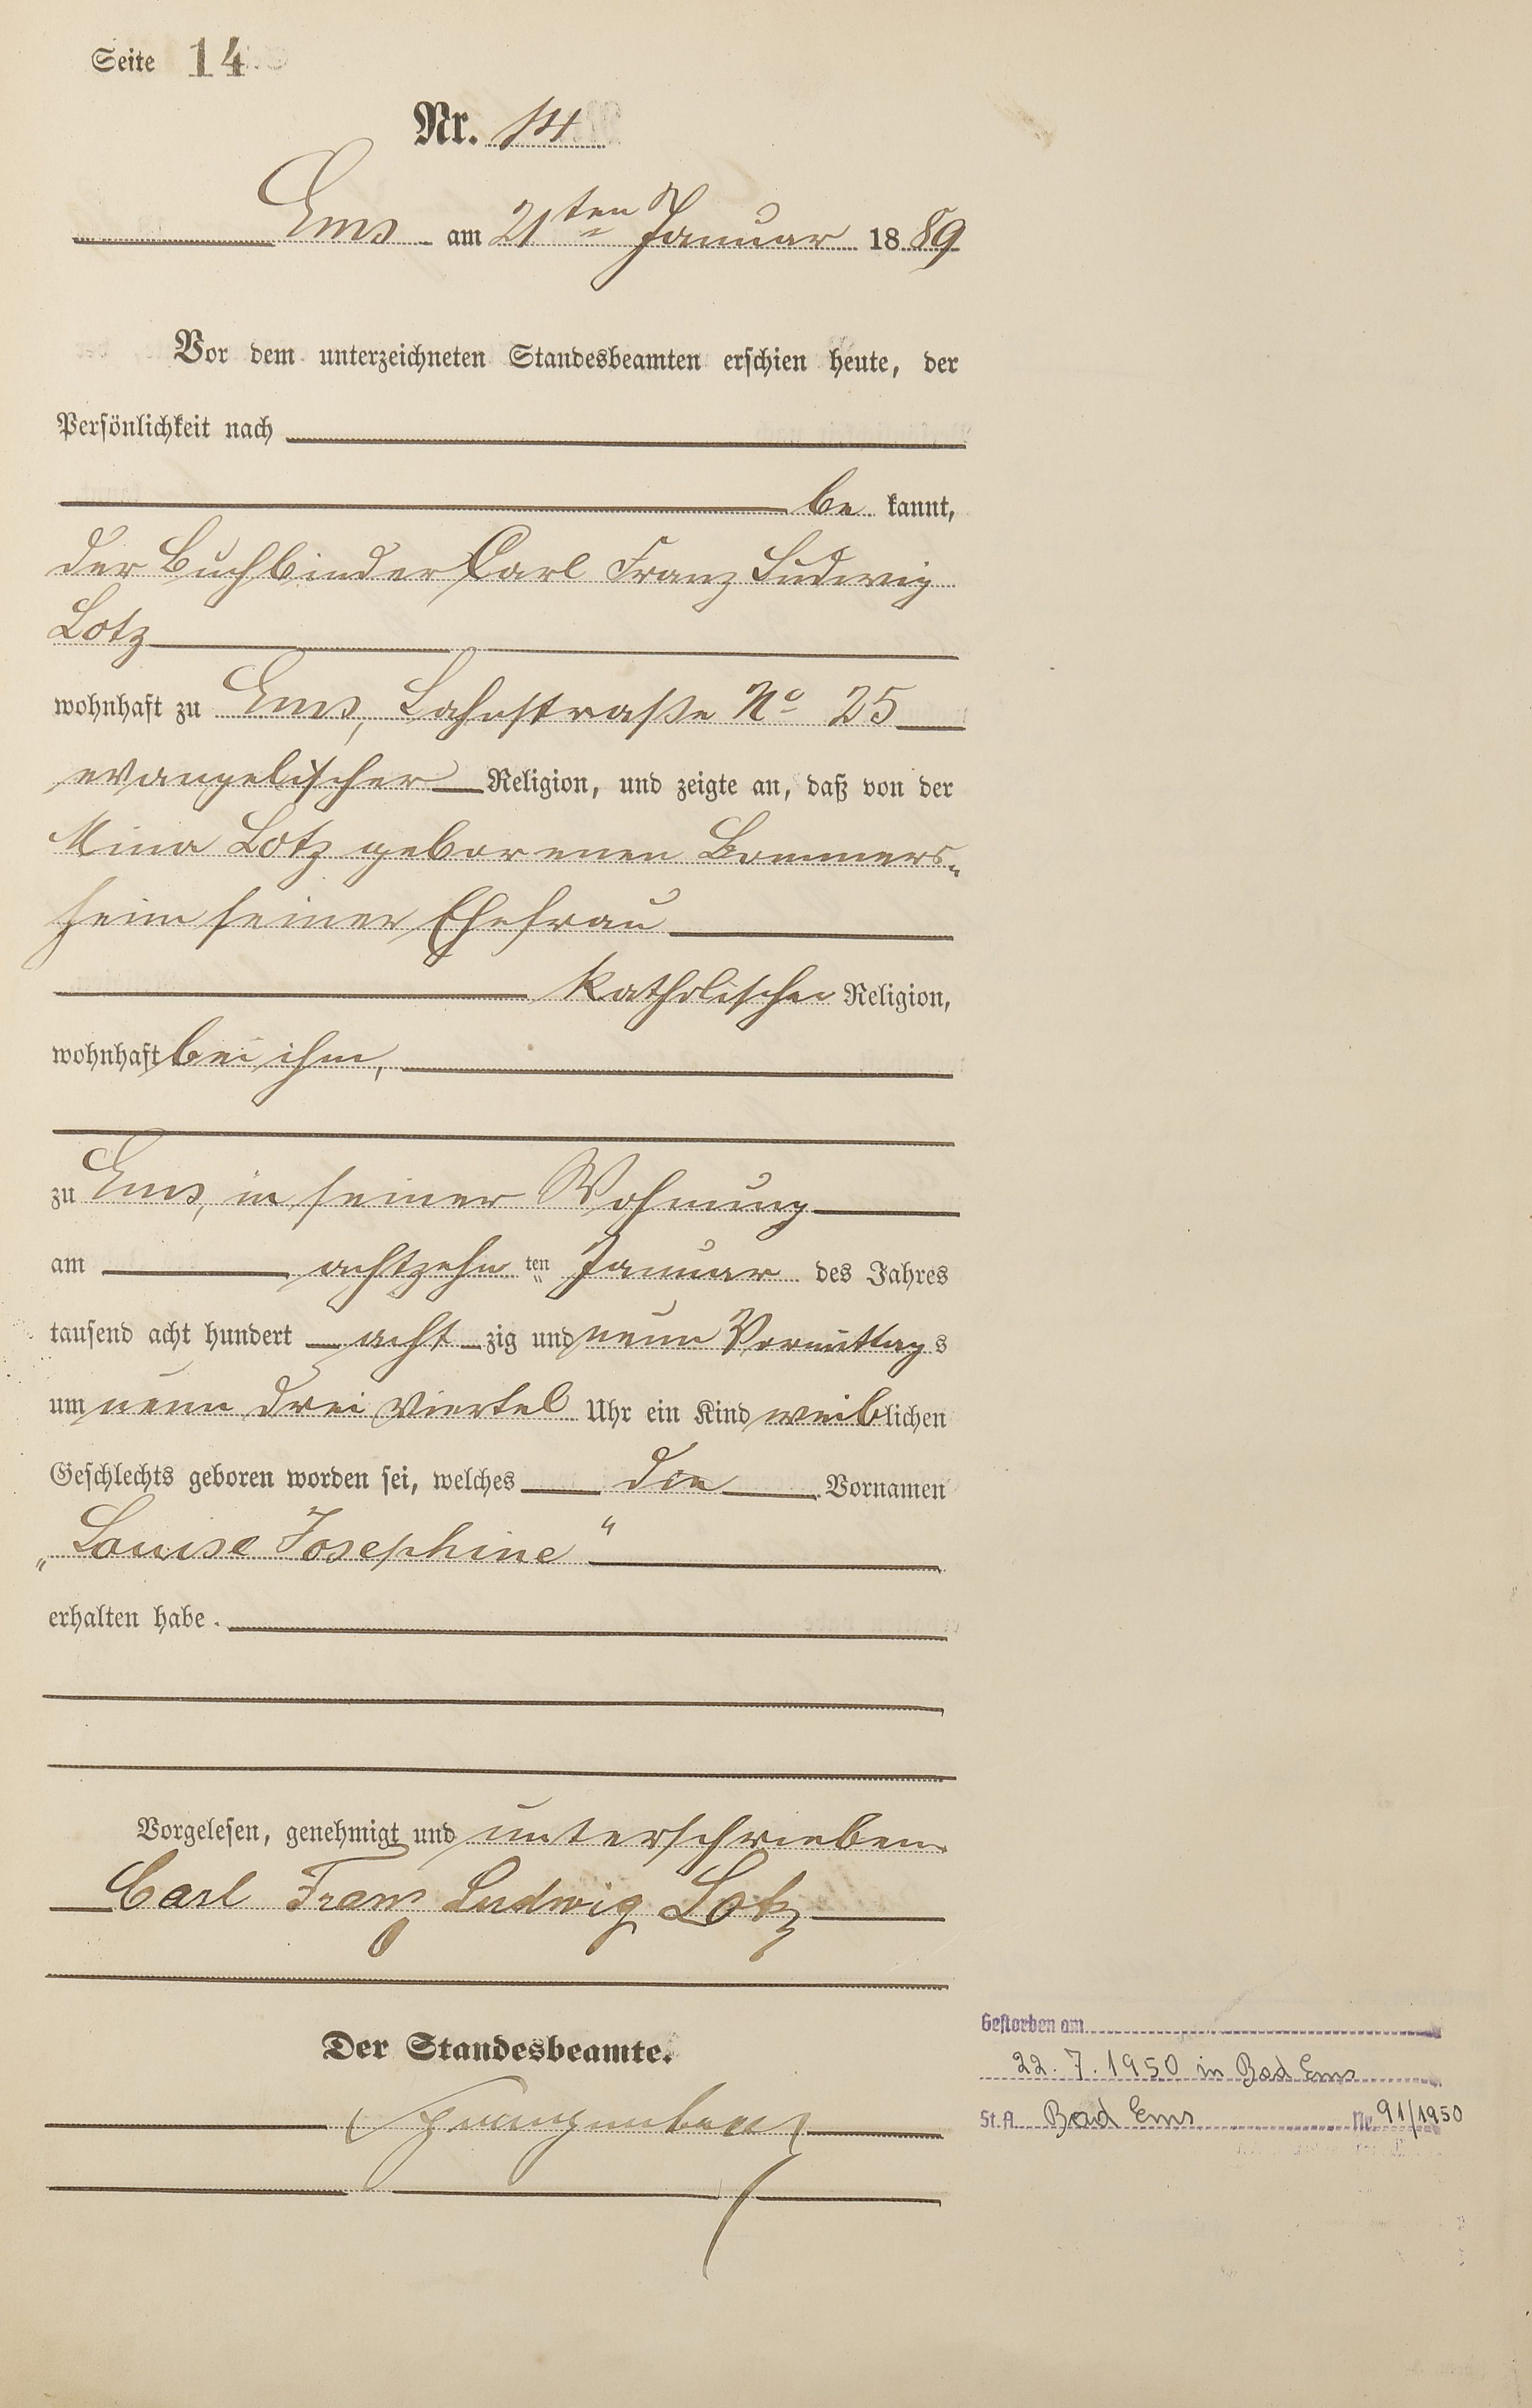 Seite 14
Nr. 14
Ems am 21ten Januar 1889
Vor dem unterzeichneten Standesbeamten erschien heute, der
Persönlichkeit nach
be kannt,
der Buchbinder Carl Franz Ludwig
Lotz
wohnhaft zu Ems, Lahnstraße No 25
evangelischer Religion, und zeigte an, daß von der
Mina Lotz geborenen Bommers-
heim seiner Ehefrau
katholischer Religion,
wohnhaft bei ihm,
zu Ems, in seiner Wohnung
am achtzehn ten Januar des Jahres
tausend acht hundert acht zig und neun Vormittags
um neun drei Viertel Uhr ein Kind weiblichen
Geschlechts geboren worden sei, welches die Vornamen
„Louise Josephine“
erhalten habe.
Vorgelesen, genehmigt und unterschrieben
Carl Franz Ludwig Lotz
Der Standesbeamte.
Gestorben am
22.7.1950 in Bad Ems
St.A. Bad Ems Nr. 91/1950